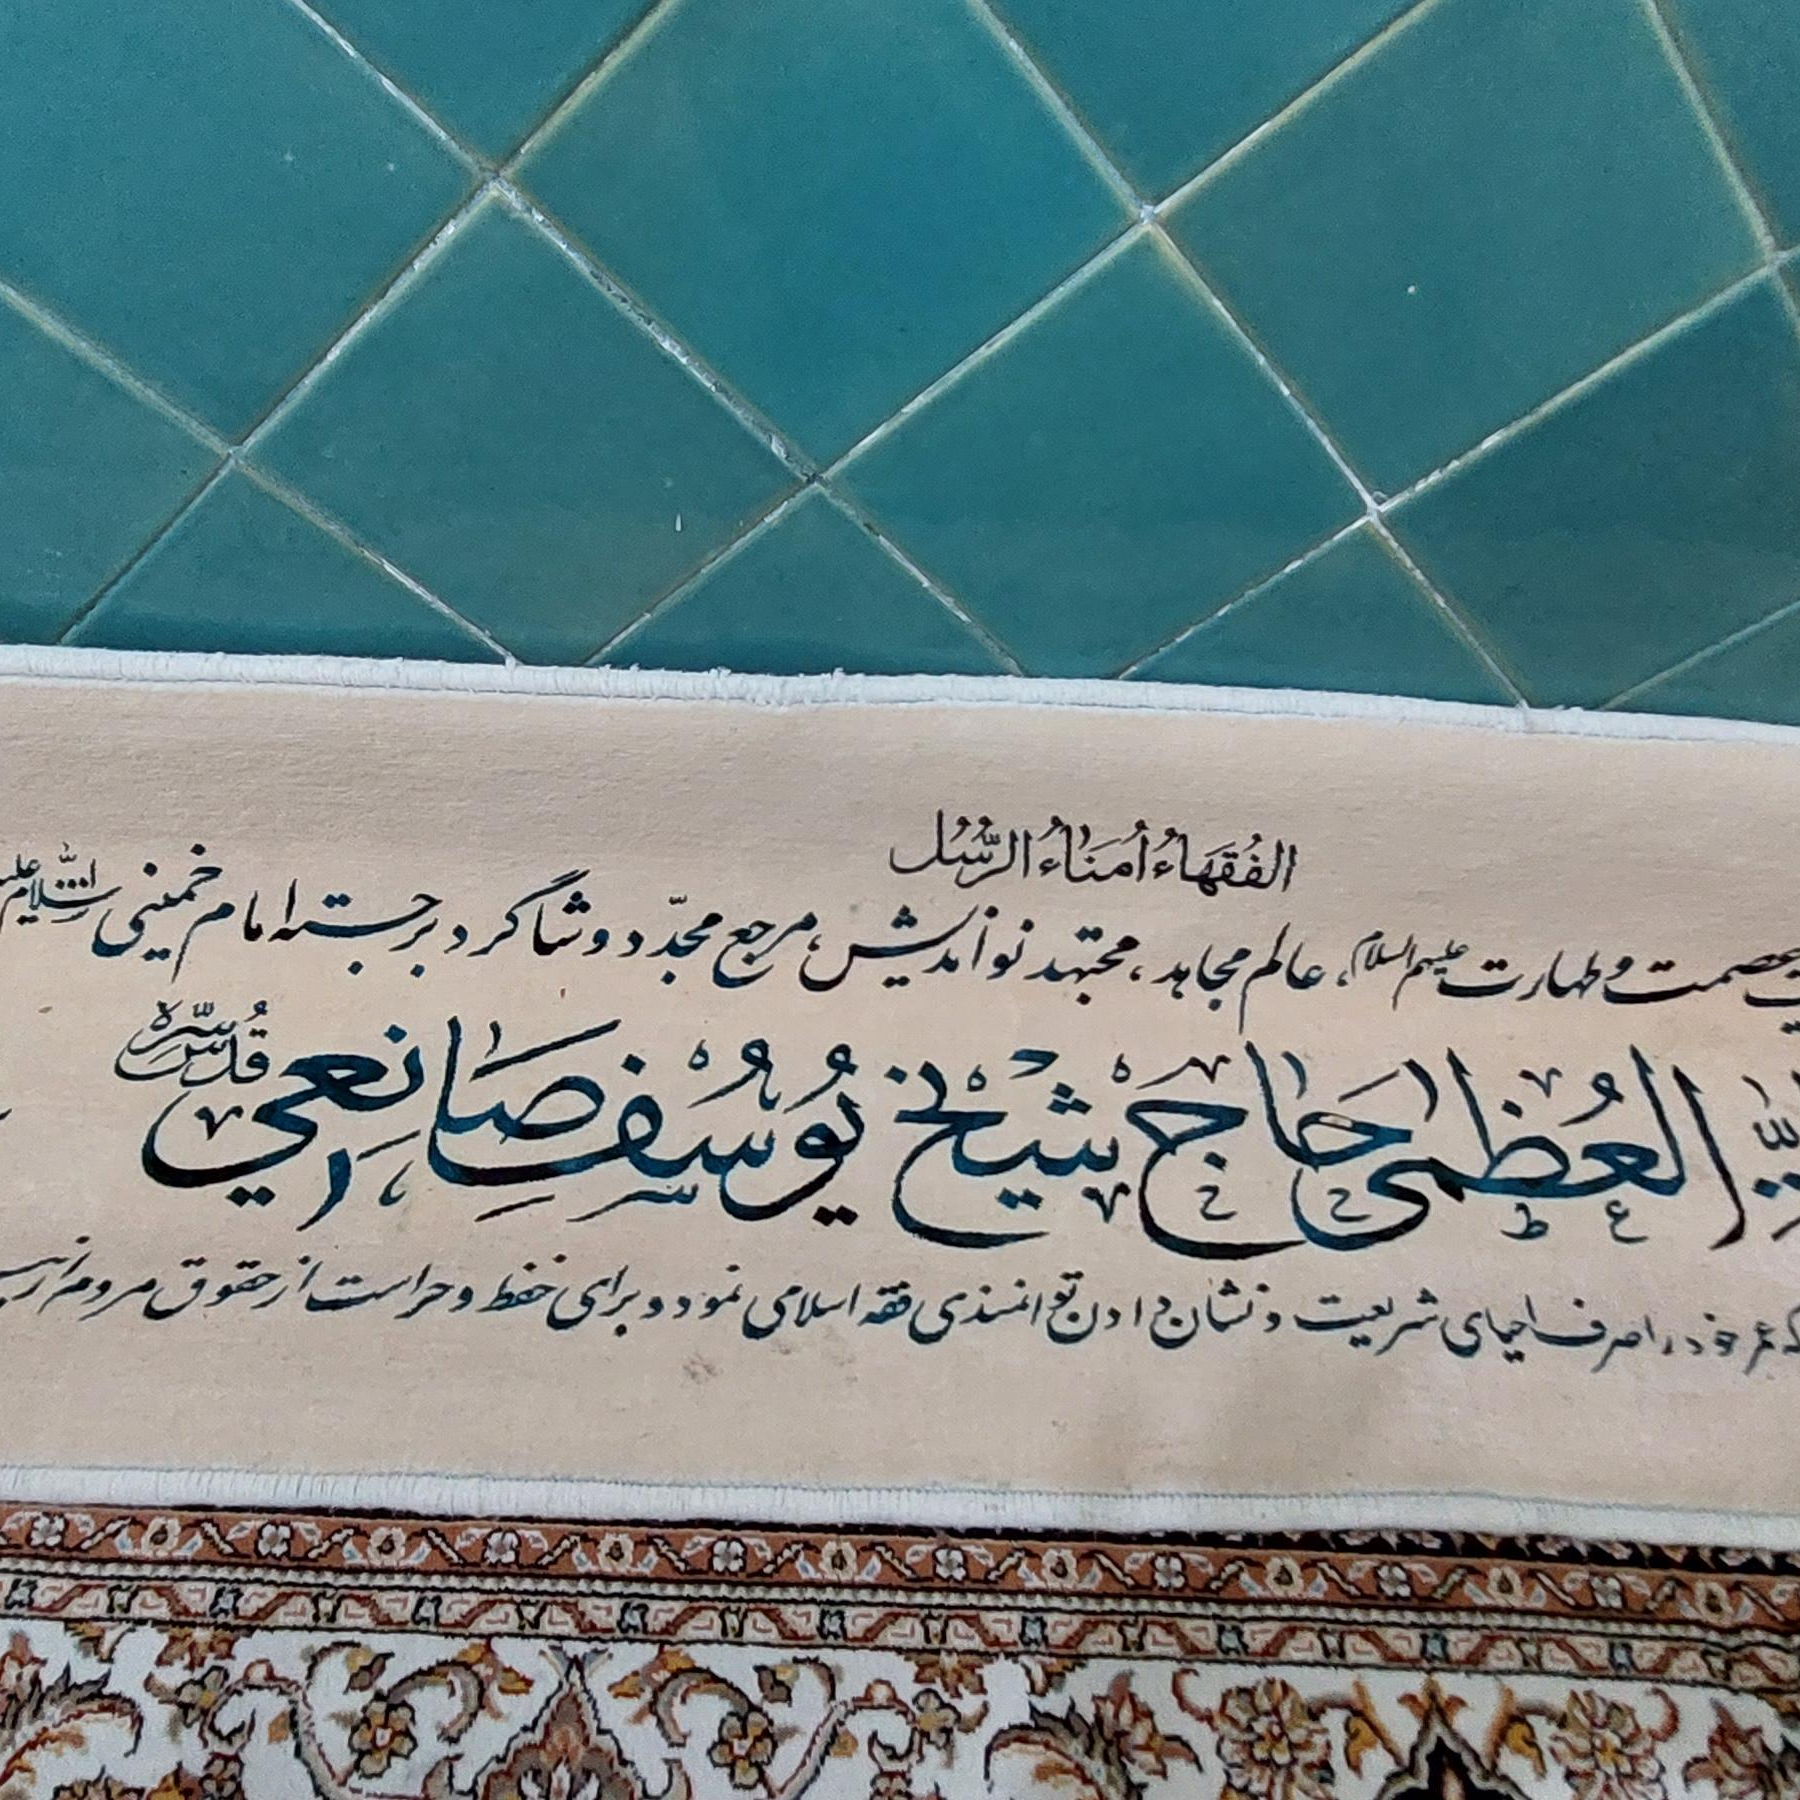 الفُقَهاءُ اُمَناءُ الرُّسُل
عصمت و طهارت علیهم السلام، عالم مجاهد، مجتهد نواندیش، مرجع مجدّد و شاگرد برجسته امام خمینی سلام الله علیه
العُظمی حاج شیخ یُوسُف صانِعی قُدّسَ سِرُّه
که عمر خود را صرف احیای شریعت و نشان دادن توانمندی فقه اسلامی نمود و برای حفظ و حراست از حقوق مردم از